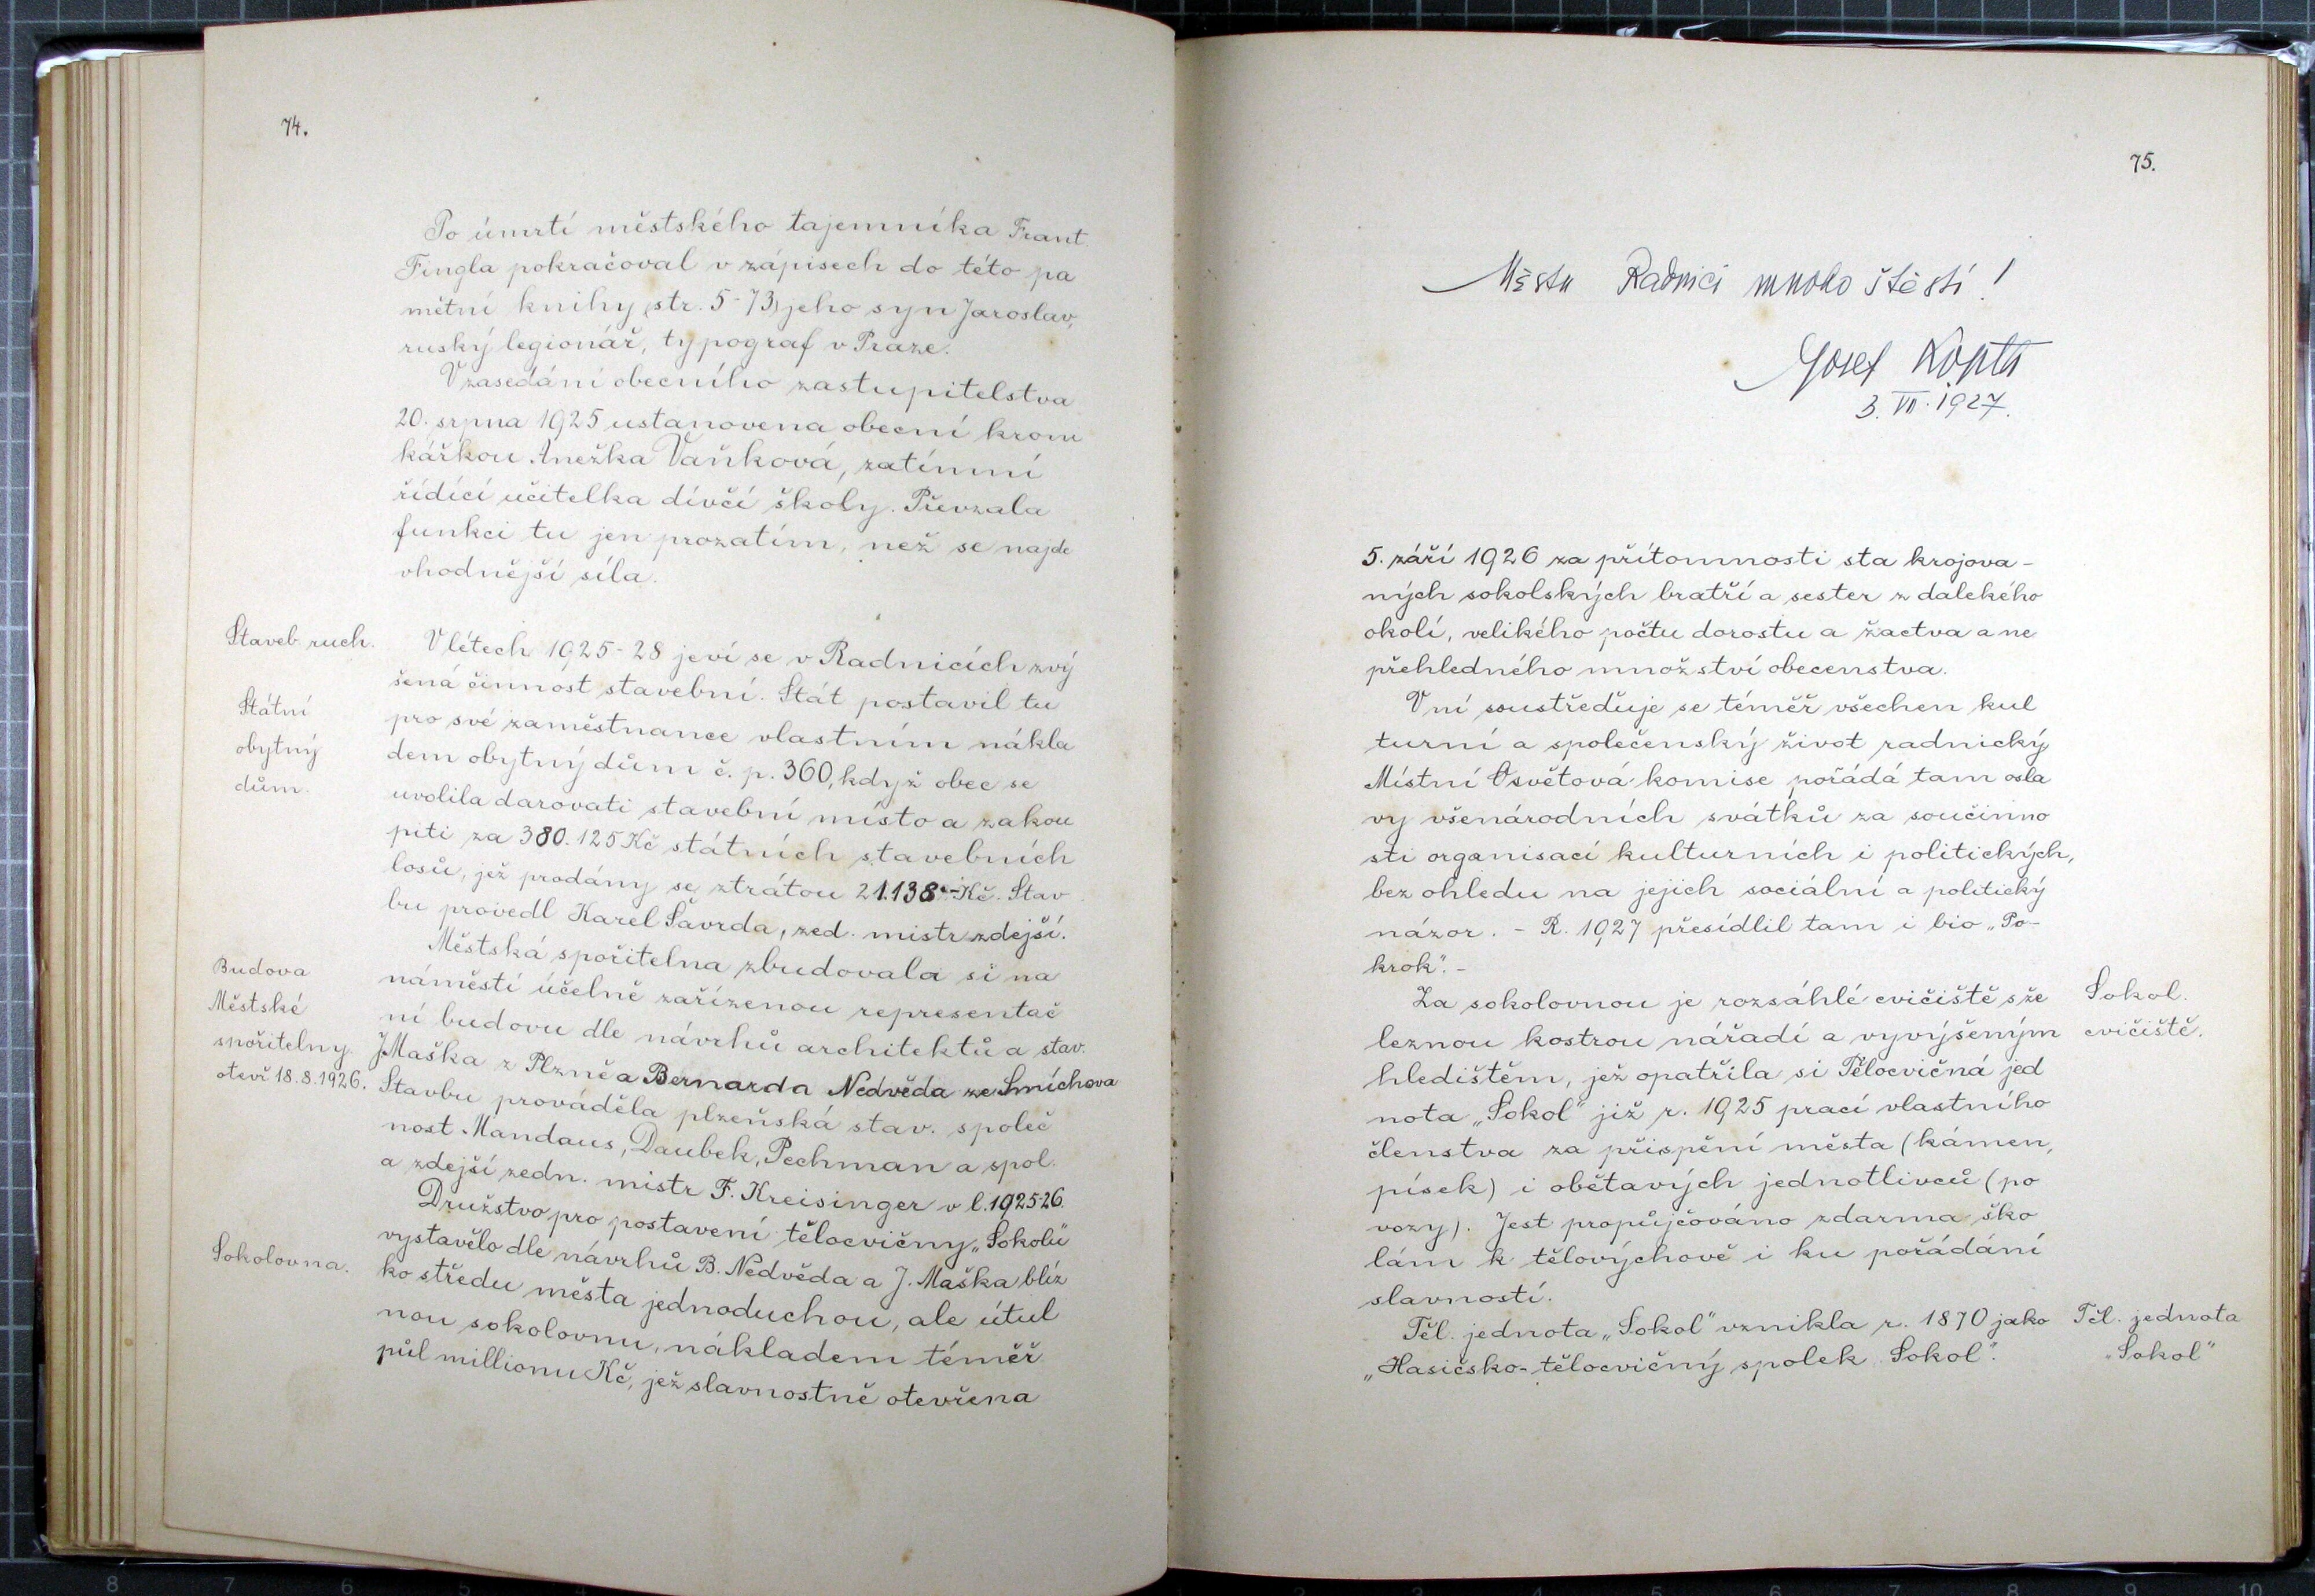 74.
Po úmrtí městského tajemníka Frant.
Fingla pokračoval v zápisech do této pa
mětní knihy (str. 5-73) jeho syn Jaroslav,
ruský legionář, typograf v Praze.
V zasedání obecního zastupitelstva
20. srpna 1925 ustanovena obecní kroni
kářkou Anežka Vaňková, zatímní
řídící učitelka dívčí školy. Převzala
funkci tu jen prozatím, než se najde
vhodnější síla.
Staveb. ruch.
V létech 1925-28 jeví se v Radnicích zvý
šená činnost stavební. Stát postavil tu
Státní
obytný
dům.
pro své zaměstnance vlastním nákla
dem obytný dům č. p. 360, když obec se
uvolila darovati stavební místo a zakou
piti za 380.125 Kč státních stavebních
losů, jež prodány se ztrátou 21.138·- Kč. Stav
bu provedl Karel Šavrda, zed. mistr zdejší.
Městská spořitelna zbudovala si na
Budova
Městské
spořitelny
otevř 18.8.1926.
náměstí účelně zařízenou representač
ní budovu dle návrhů architektů a stav.
J. Maška z Plzně a Bernarda Nedvěda ze Smíchova
Stavbu prováděla plzeňská stav. společ
nost Mandaus, Daubek, Pechman a spol.
a zdejší zedn. mistr F. Kreisinger v l. 1925-26.
Družstvo pro postavení tělocvičny „Sokolu"
vystavělo dle návrhů B. Nedvěda a J. Maška blíz
Sokolovna.
ko středu města jednoduchou, ale útul
nou sokolovnu, nákladem téměř
půl millionu Kč, jež slavnostně otevřena
75.
Městu Radnici mnoho štěstí!
Josef Kopta
3. VII. 1927.
5. září 1926 za přítomnosti sta krojova-
ných sokolských bratří a sester z dalekého
okolí, velikého počtu dorostu a žactva a ne
přehledného množství obecenstva.
V ní soustřeďuje se téměř všechen kul
turní a společenský život radnický.
Místní Osvětová komise pořádá tam osla
vy všenárodních svátků za součinno
sti organisací kulturních i politických,
bez ohledu na jejich sociální a politický
názor. - R. 1927 přesídlil tam i bio „Po-
krok". -
Za sokolovnou je rozsáhlé cvičiště s že
Sokol.
cvičiště.
leznou kostrou nářadí a vyvýšeným
hledištěm, jež opatřila si Tělocvičná jed
nota „Sokol" již r. 1925 prací vlastního
členstva za přispění města (kámen,
písek) i obětavých jednotlivců (po
vozy). Jest propůjčováno zdarma ško
lám k tělovýchově i ku pořádání
slavností.
Těl. jednota „Sokol" vznikla r. 1870 jako
Těl. jednota
„Sokol"
„Hasičsko-tělocvičný spolek Sokol".
8 7 6 5 4 1 2 3 4 5 6 7 8 9 10